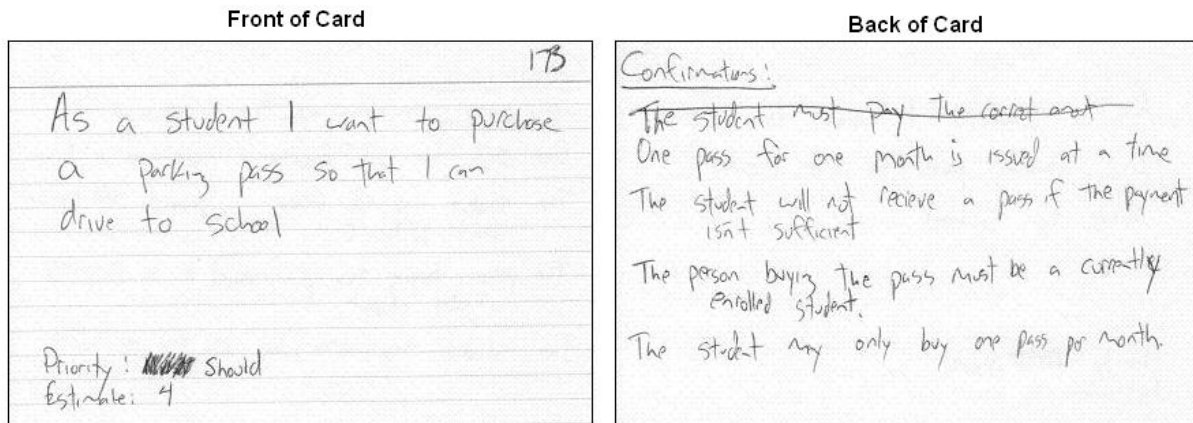 Front of Card
173
As a student I want to purchase
a parking pass so that I can
drive to school
Priority: Should
Estimate: 4
Back of Card
Confirmations:
The student must pay the correct
One pass for one month is issued at a time
The student will not recieve a pass if the payment
isn't sufficient
The person buying the pass must be a currently
enrolled student.
The student may only buy one pass per month.